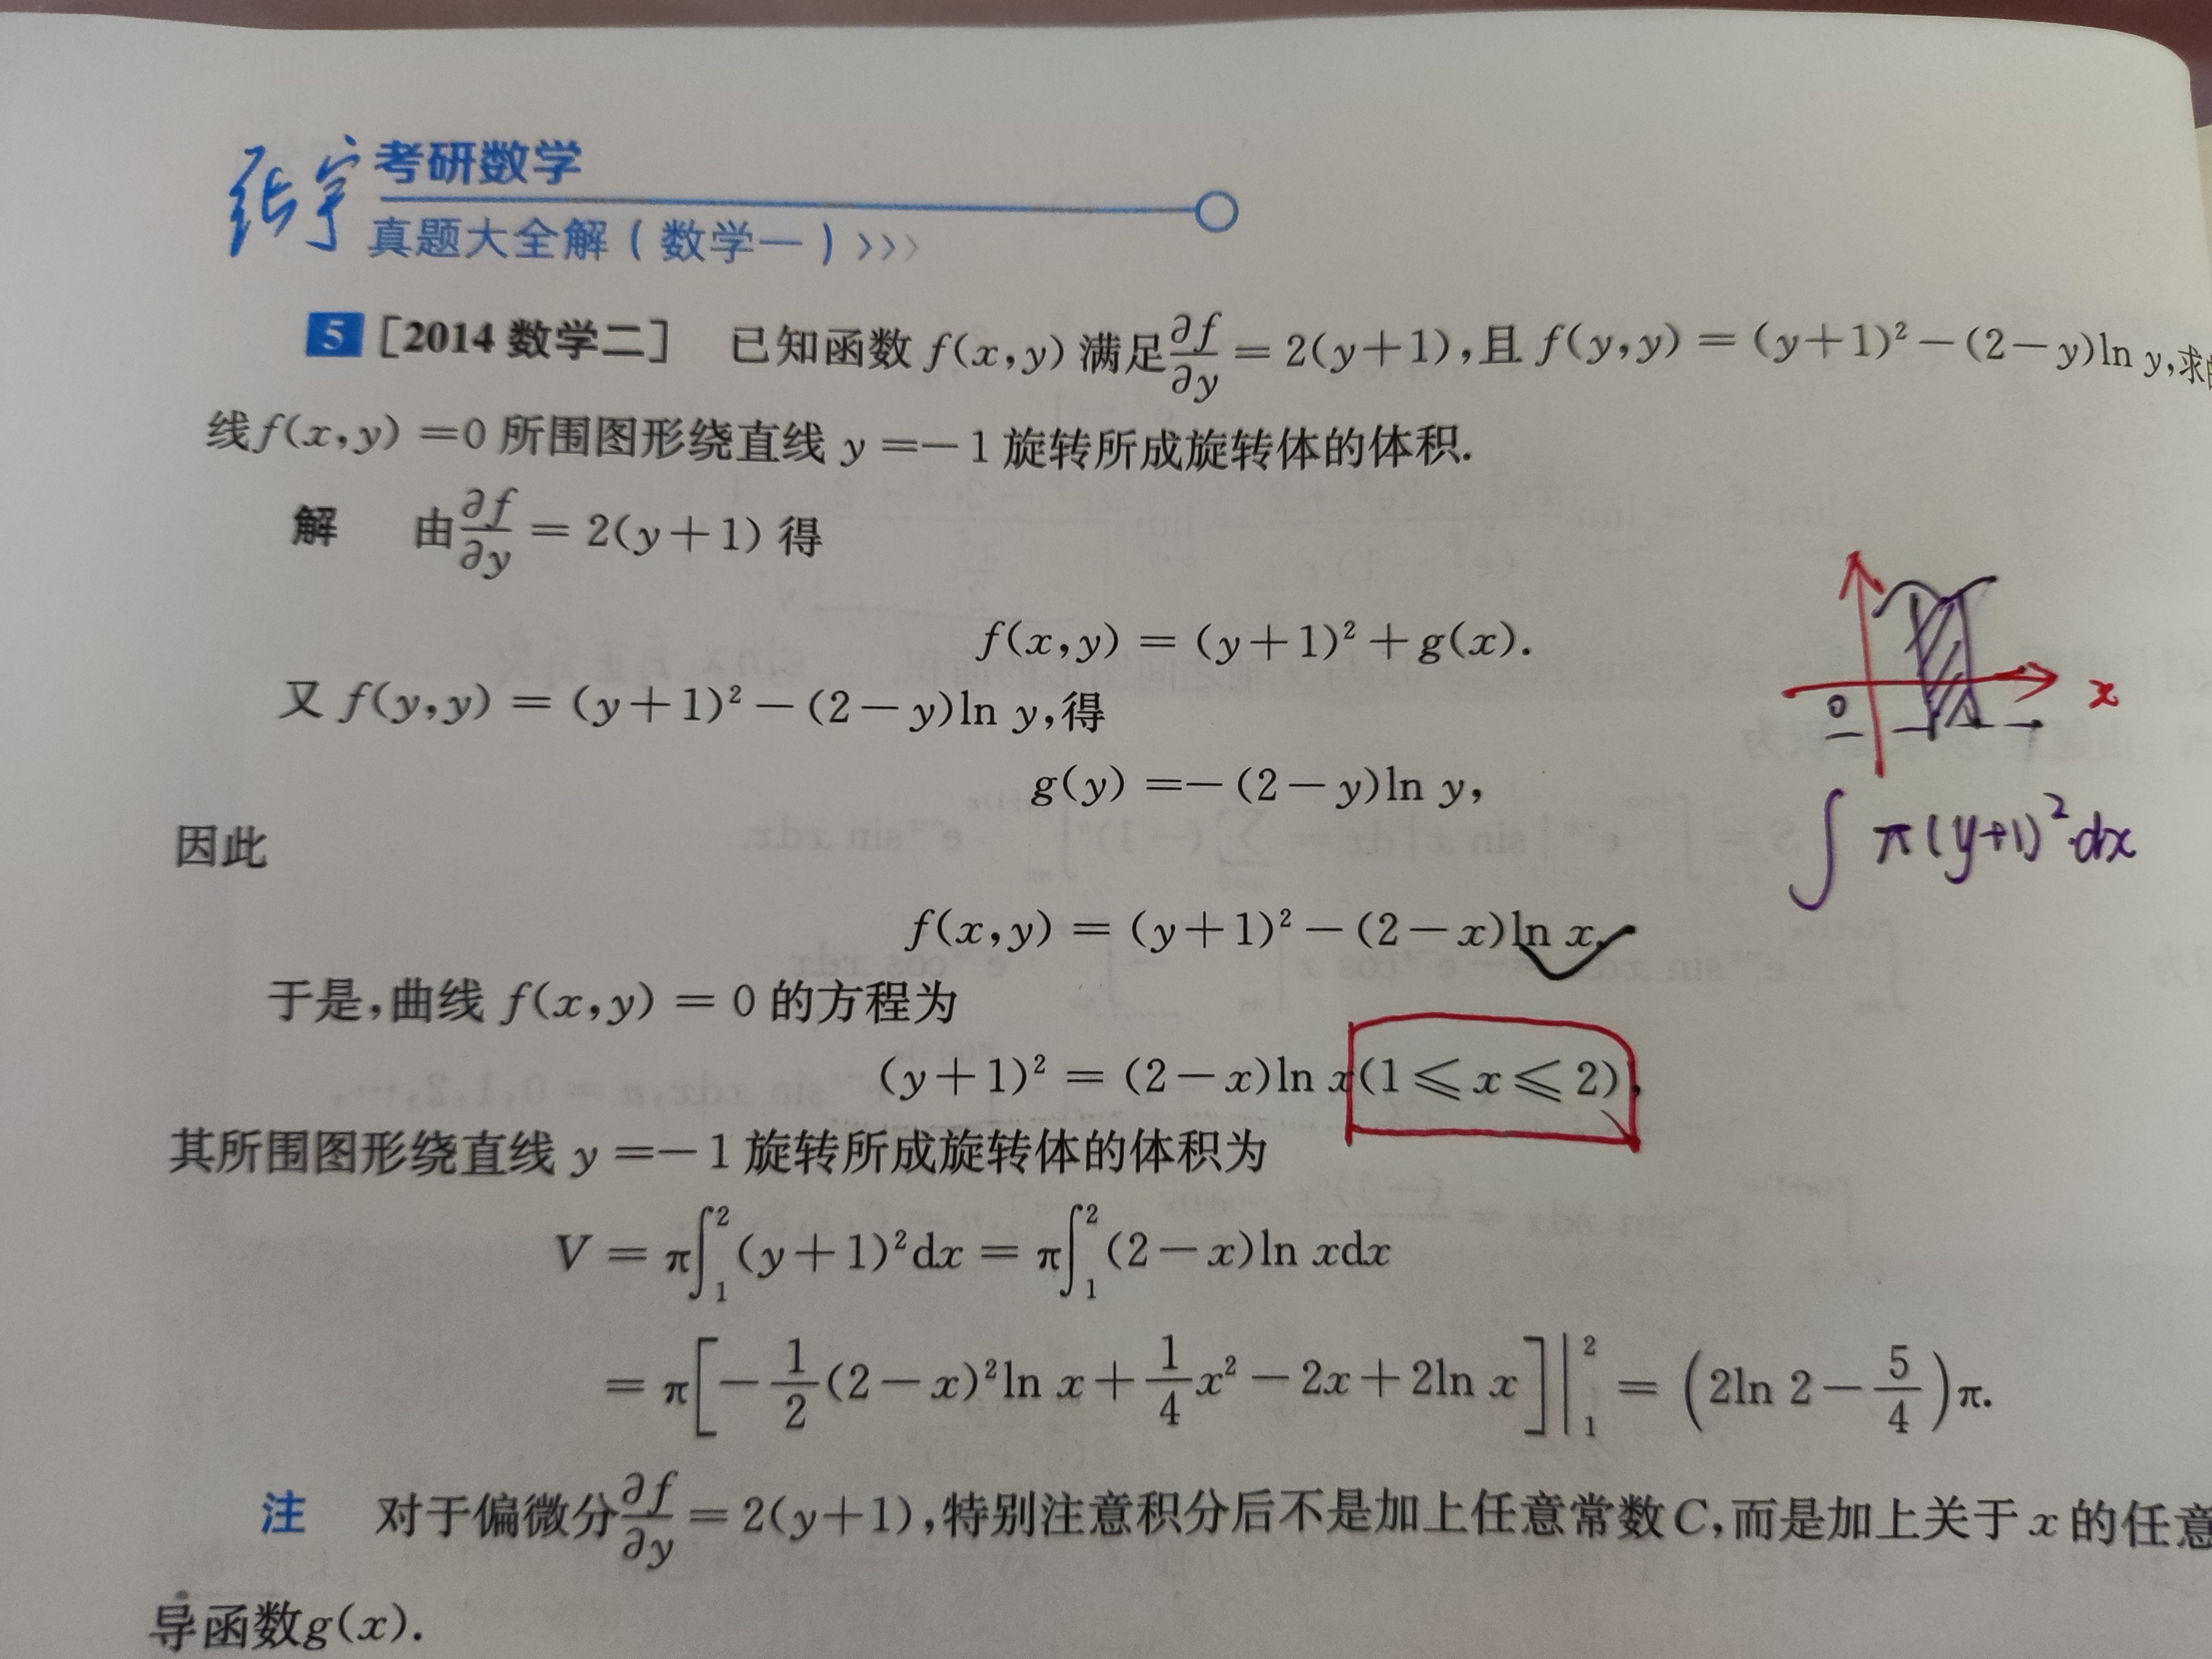 张宇 考研数学
真题大全解(数学一)>>>
5 [2014 数学二] 已知函数 f(x,y) 满足∂f/∂y = 2(y+1),且 f(y,y) = (y+1)² − (2−y)ln y,求
线 f(x,y) =0 所围图形绕直线 y =−1 旋转所成旋转体的体积.
解 由∂f/∂y = 2(y+1) 得
f(x,y) = (y+1)² + g(x).
又 f(y,y) = (y+1)² − (2−y)ln y,得
g(y) =−(2−y)ln y,
因此
f(x,y) = (y+1)² − (2−x)ln x.
于是,曲线 f(x,y) = 0 的方程为
(y+1)² = (2−x)ln x(1 ⩽ x ⩽ 2),
其所围图形绕直线 y =−1 旋转所成旋转体的体积为
V = π∫₁²(y+1)²dx = π∫₁²(2−x)ln xdx
= π[−1/2(2−x)²ln x + 1/4x² − 2x + 2ln x]|₁² = (2ln 2 − 5/4)π.
注 对于偏微分∂f/∂y = 2(y+1),特别注意积分后不是加上任意常数C,而是加上关于 x 的任意
导函数g(x).
0
x
∫ π(y+1)²·dx